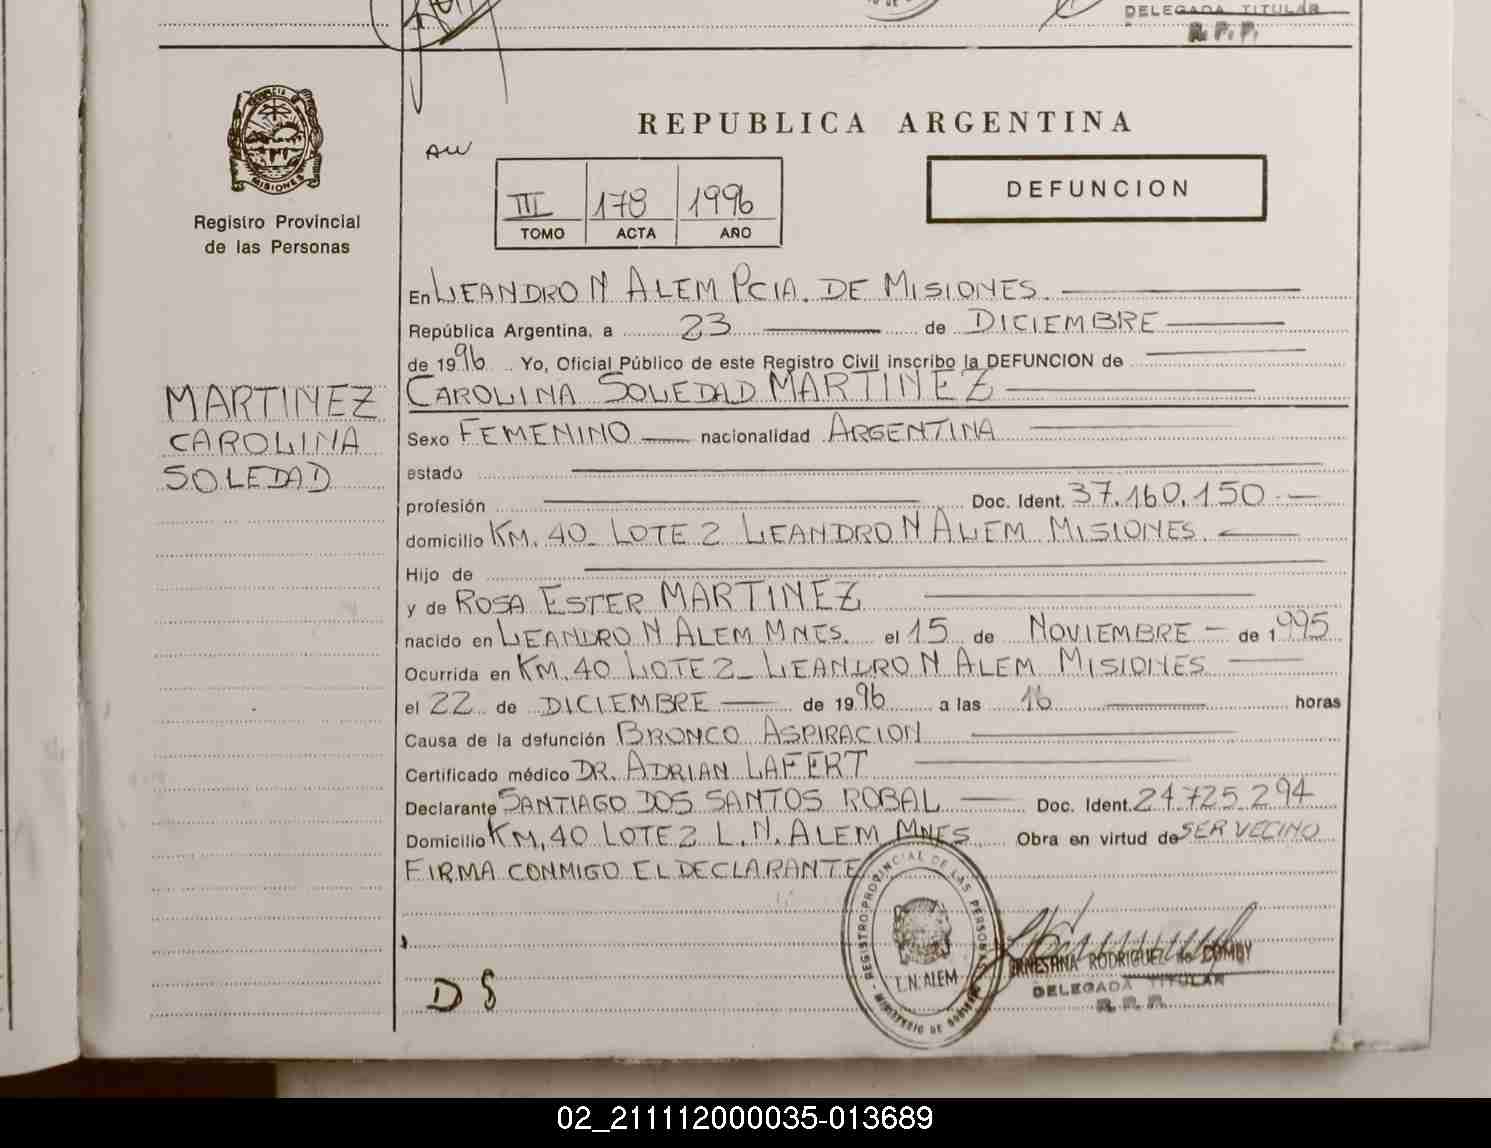 DELEGADA TITULAR
R. P. P.
REPUBLICA ARGENTINA
AW
III 178 1996
TOMO ACTA AÑO
DEFUNCION
MISIONES
Registro Provincial
de las Personas
En LEANDRO N ALEM PCIA. DE MISIONES.
República Argentina, a 23 de DICIEMBRE
de 1996 Yo, Oficial Público de este Registro Civil inscribo la DEFUNCION de
CAROLINA SOLEDAD MARTINEZ
MARTINEZ
CAROLINA
SOLEDAD
Sexo FEMENINO nacionalidad ARGENTINA
estado
profesión Doc. Ident. 37.160.150
domicilio KM. 40 LOTE 2 LEANDRO N ALEM MISIONES.
Hijo de
y de ROSA ESTER MARTINEZ
nacido en LEANDRO N ALEM MNES. el 15 de NOVIEMBRE de 1995
Ocurrida en KM. 40 LOTE 2 LEANDRO N ALEM MISIONES
el 22 de DICIEMBRE de 1996 a las 16 horas
Causa de la defunción BRONCO ASPIRACION
Certificado médico DR. ADRIAN LAFERT
Declarante SANTIAGO DOS SANTOS ROBAL Doc. Ident. 24.725.294
Domicilio KM, 40 LOTE 2 L.N. ALEM MNES Obra en virtud de SER VECINO
FIRMA CONMIGO EL DECLARANTE
REGISTRO PROVINCIAL DE LAS PERSONAS
L.N. ALEM
MINISTERIO DE GOBIERNO
RODRIGUEZ de DOMBY
DELEGADA TITULAR
R. P. P.
D S
02_211112000035-013689